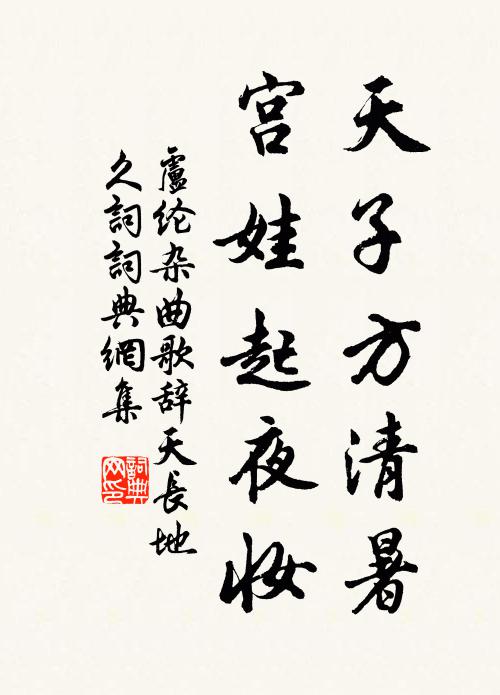 天子方清暑
宫娃起夜妆
盧纶杂曲歌辞天長地
久詞詞典網集
詞典
网印